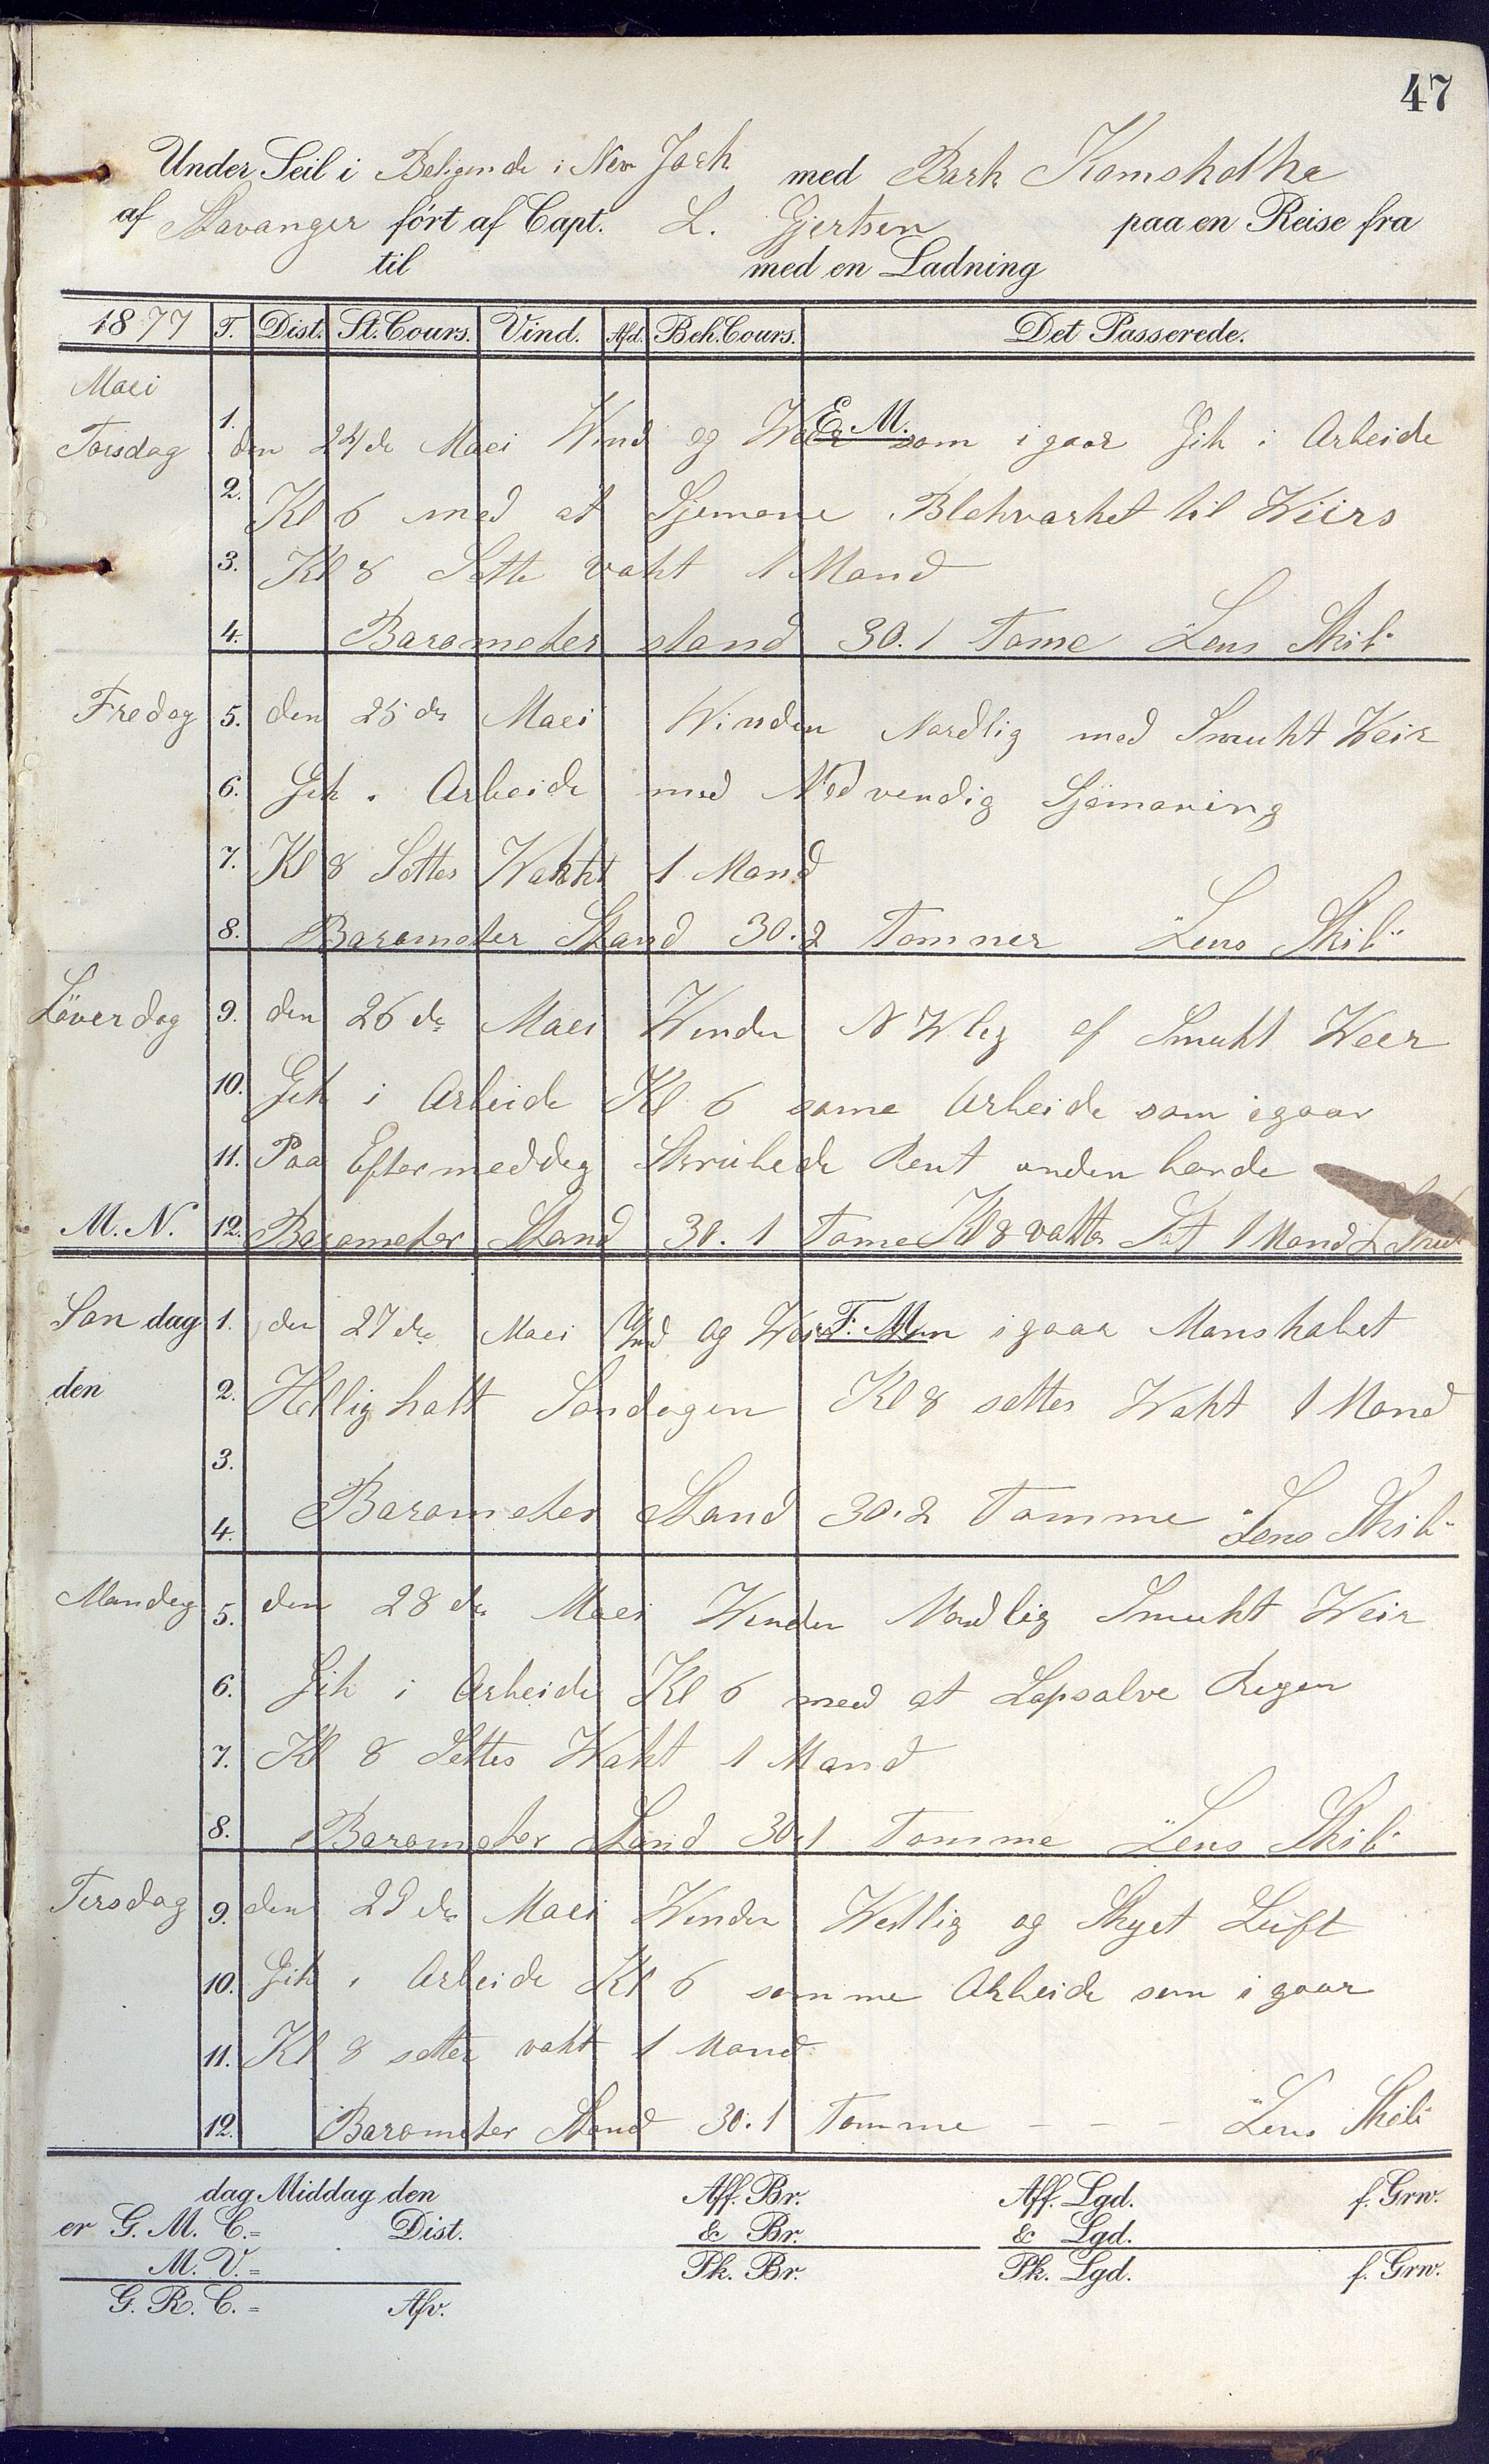 47
Under Seil i Beligende i New Jork med Bark Komshotka
af Stavanger ført af Capt. L. Gjertsen paa en Reise fra
til med en Ladning
1877 T. Dist. St. Cours. Vind. Afd. Beh. Cours. Det Passerede.
Maei
1. E. M.
Torsdag den 24de Maei Wind og Weer som igaar Gik i Arbeide
2. Kl 6 med at Sjemane Blokvarket til Wiirs
3. Kl 8 Sette vakt 1 Mand
4. Barometer stand 30.1 Tome Lens Skib
Fredag 5. den 25de Maei Winden Nordlig med Smukt Weir
6. Gik i Arbeide med Nødvendig Sjømaning
7. Kl 8 Settes Wakt 1 Mand
8. Barometer Stand 30.2 Tommer Lens Skib
Löverdag 9. den 26de Maei Winden NWlig af Smukt Weer
10. Gik i Arbeide Kl 6 same Arbeide som igaar
11. Paa Eftermeddag Skrubede Rent unden borde
M. N. 12. Barometer Stand 30.1 Tome Kl 8 vakte Set 1 Mand L Skib
Søndag 1. den 27de Maei Vind og Weir som igaar Manskabet
F. M.
den 2. Hellig halt Søndagen Kl 8 settes Wakt 1 Mand
3.
4. Barometer Stand 30.2 Tomme Lens Skib
Mandag 5. den 28de Maei Winden Nordlig Smukt Weir
6. Gik i Arbeide Kl 6 med at Lapsalve Regen
7. Kl 8 Settes Wakt 1 Mand
8. Barometer Stand 30.1 Tomme Lens Skib
Tirsdag 9. den 29de Maei Winden Westlig og Skyet Luft
10. Gik i Arbeide Kl 6 somme Arbeide som igaar
11. Kl 8 settes vakt 1 Mand
12. Barometer Stand 30.1 Tomme - - - Lens Skib
dag Middag den Aff. Br. Aff. Lgd. f. Grw.
er G. M. C. = Dist. & Br. & Lgd.
M. V. = Pk. Br. Pk. Lgd. f. Grw.
G. R. C. = Afv.